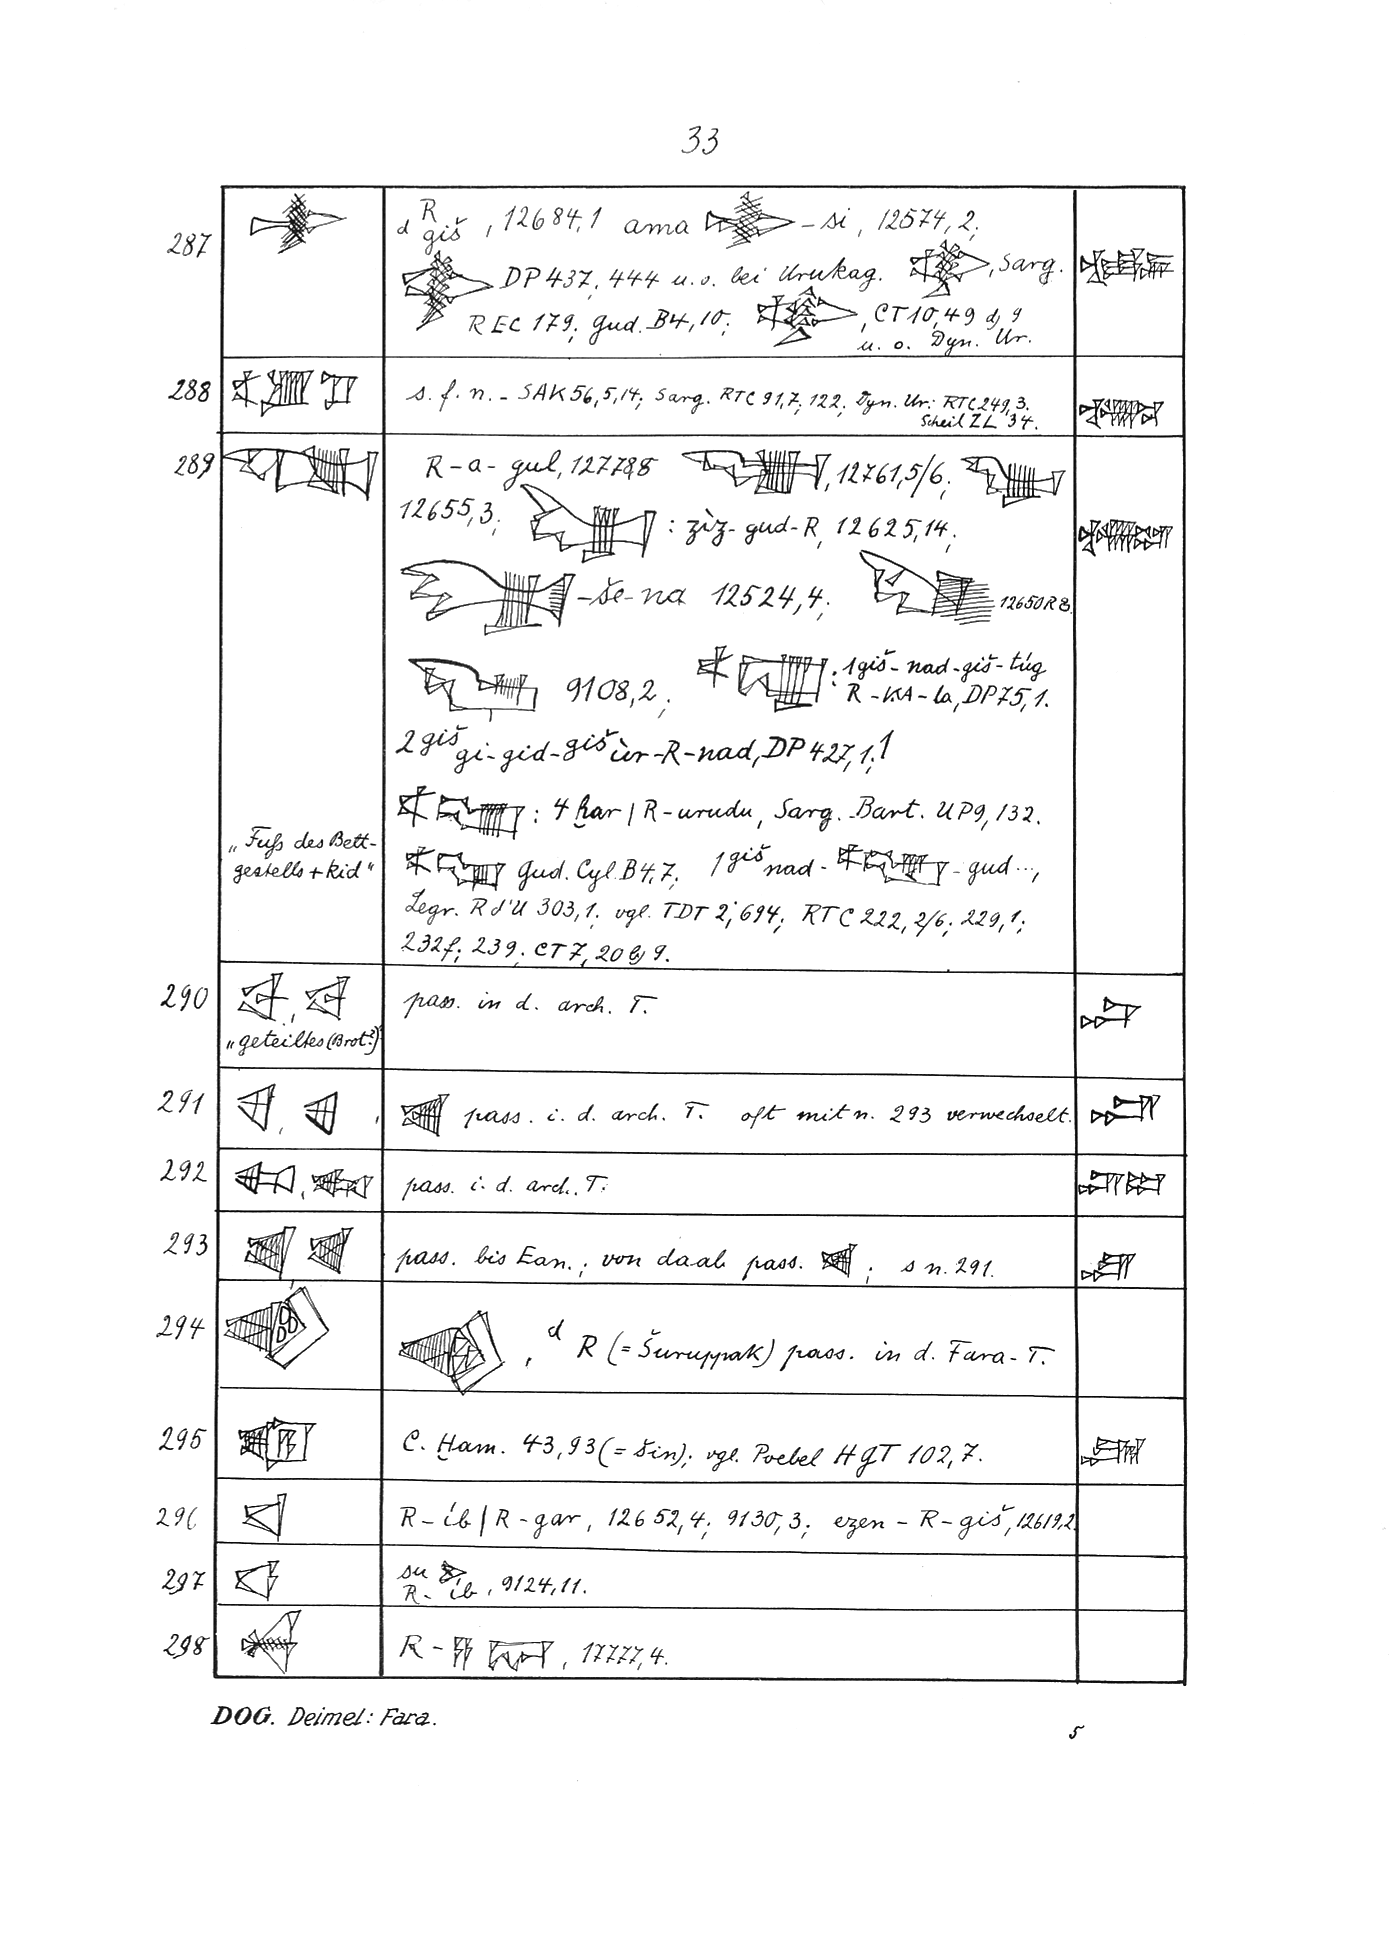 33
287
d R giš , 12684,1 ama – si , 12574,2;
DP 437, 444 u. o. bei Urukag. , Sarg.
REC 179; Gud. B4,10; , CT 10,49 d, 9
u. o. Dyn. Ur.
288
s. f. n. – SAK 56,5,14; Sarg. RTC 91,7; 122; Dyn. Ur: RTC 249,3.
Scheil ZL 34.
289
R – a – gul, , 12761,5/6;
12655,3; : zìz – gud – R, 12625,14;
– še – na 12524,4; 12650 R 8.
9108,2; : 1 giš – nad – giš – túg
R – KA – la, DP 75,1.
2 giš gi – gid – giš ùr – R – nad, DP 427,1;!
: 4 ḫar | R – urudu, Sarg. Bart. UP 9, 132.
„Fuß des Bett-
gestells + kid“
Gud. Cyl. B4,7; 1 giš nad – – gud ...,
Legr. 303,1; vgl. TDT 2, 694; RTC 222, 2/6; 229,1;
232f; 239; CT 7, 20 b, 9.
290
pass. in d. arch. T.
„geteiltes (Brot?)“
291
pass. i. d. arch. T. oft mit n. 293 verwechselt.
292
pass. i. d. arch. T.
293
pass. bis Ean.; von da ab pass. ; s n. 291.
294
, d R (= Šuruppak) pass. in d. Fara – T.
295
C. Ḫam. 43,93 (= šin); vgl. Poebel HGT 102,7.
296
R – íb | R – gar, 12652,4; 9130,3; ezen – R – giš, 12619,2.
297
su
R – íb , 9124,11.
298
R – , 17777,4.
DOG. Deimel: Fara.
5